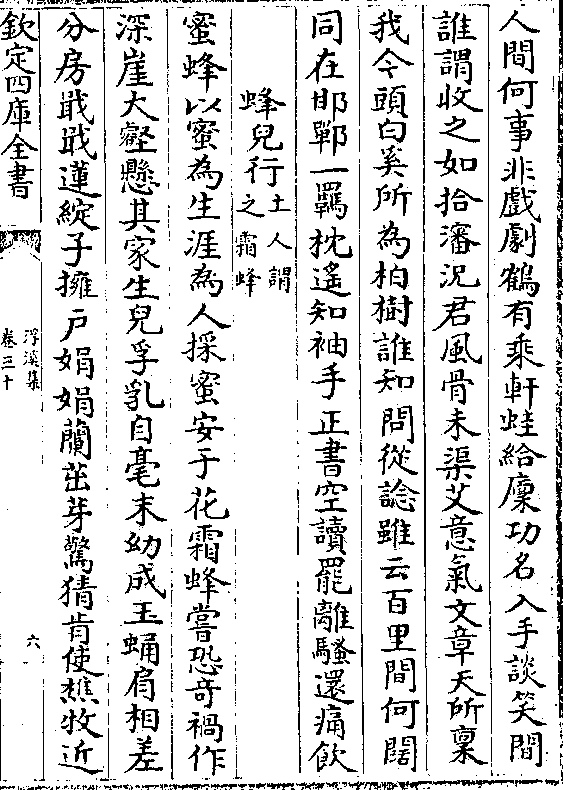 人間何事非戲劇鶴有乘軒蛙給廩功名入手談笑間
誰謂收之如拾瀋況君風骨未渠艾意氣文章天所稟
我今頭白奚所為柏樹誰知問從諗雖云百里間何闊
同在邯鄲一羈枕遙知袖手正書空讀罷離騷還痛飲
蜂兒行土人謂之霜蜂
蜜蜂以蜜為生涯為人採蜜安于花霜蜂嘗恐奇禍作
深崖大壑懸其家生兒孚乳自毫末幼成玉蛹肩相差
分房戢戢蓮綻子擁戶娟娟蘭茁芽驚猜肯使樵牧近
欽定四庫全書
浮溪集
卷三十
六